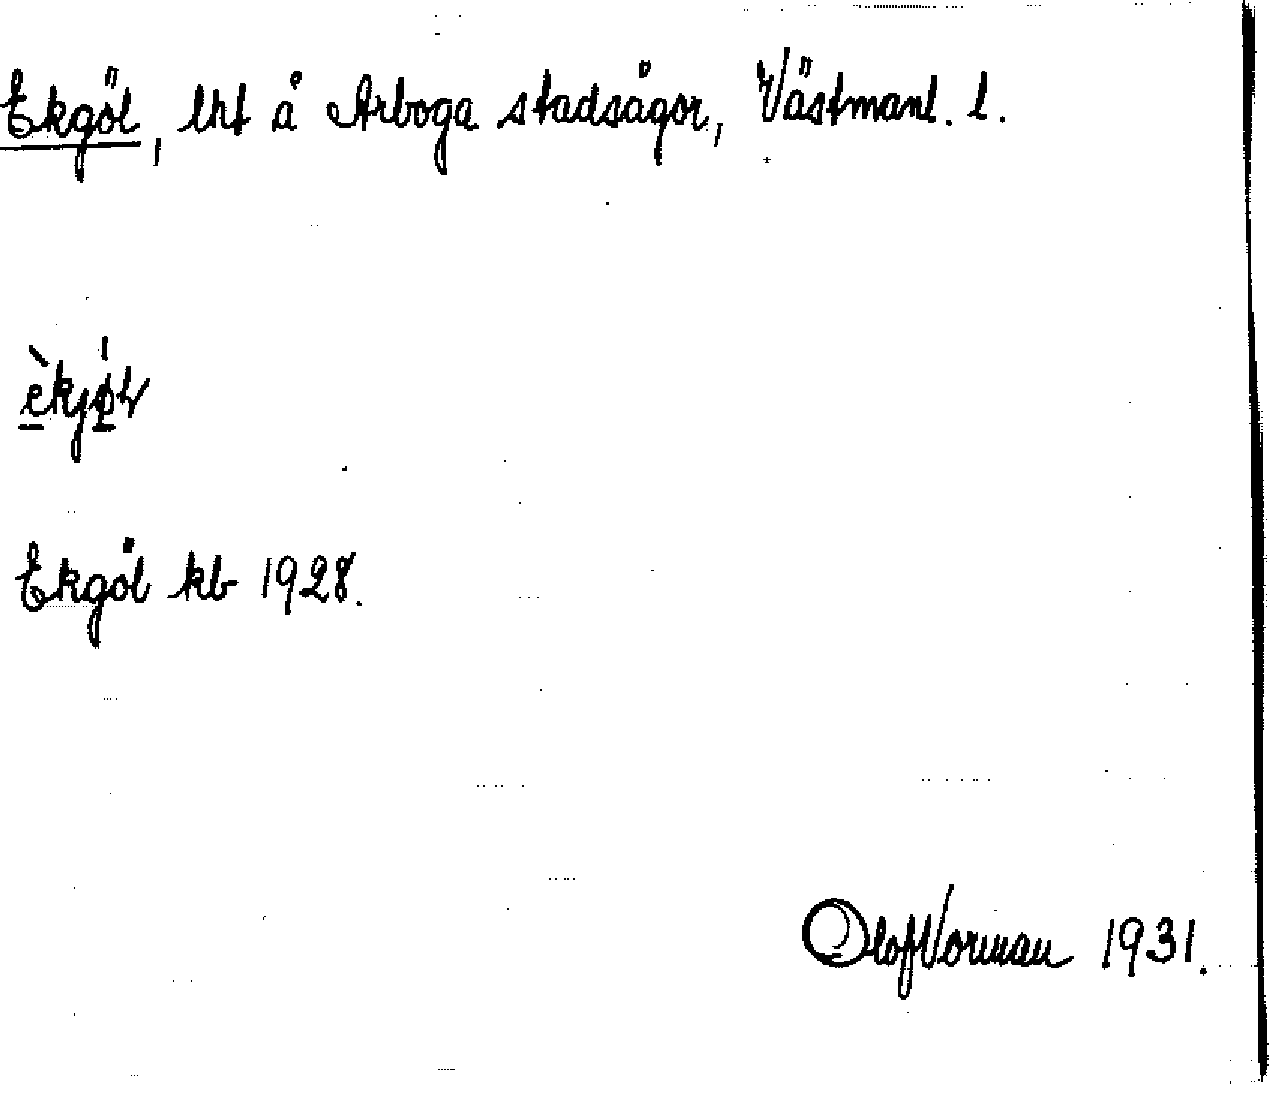 Ekgöl, lht å Arboga stadsågor, Västmanl. l.
Ekgöl kb 1928.
Olof Norman 1931.